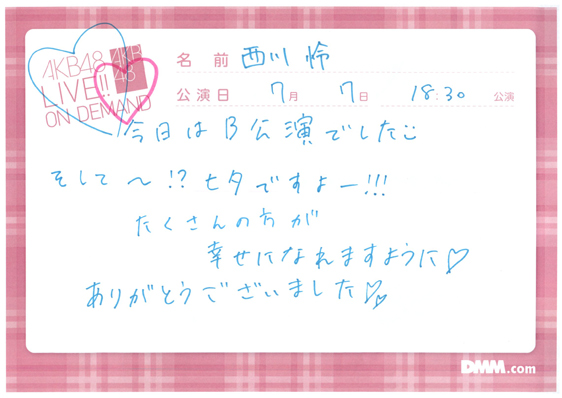 AKB48
LIVE!!
ON DEMAND
AKB
48
名前 西川 怜
公演日 7月 7日 18:30 公演
今日は B 公演でした
そして 〜 !? 七夕ですよー!!!
たくさんの方が
幸せになれますように♡
ありがとうございました♡
DMM.com